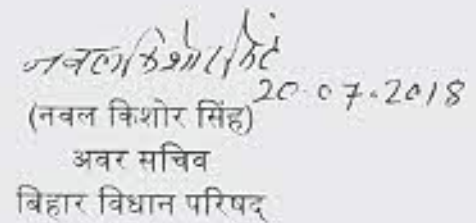 नवल किशोर सिंह
20.07.2018
(नवल किशोर सिंह)
अवर सचिव
बिहार विधान परिषद्